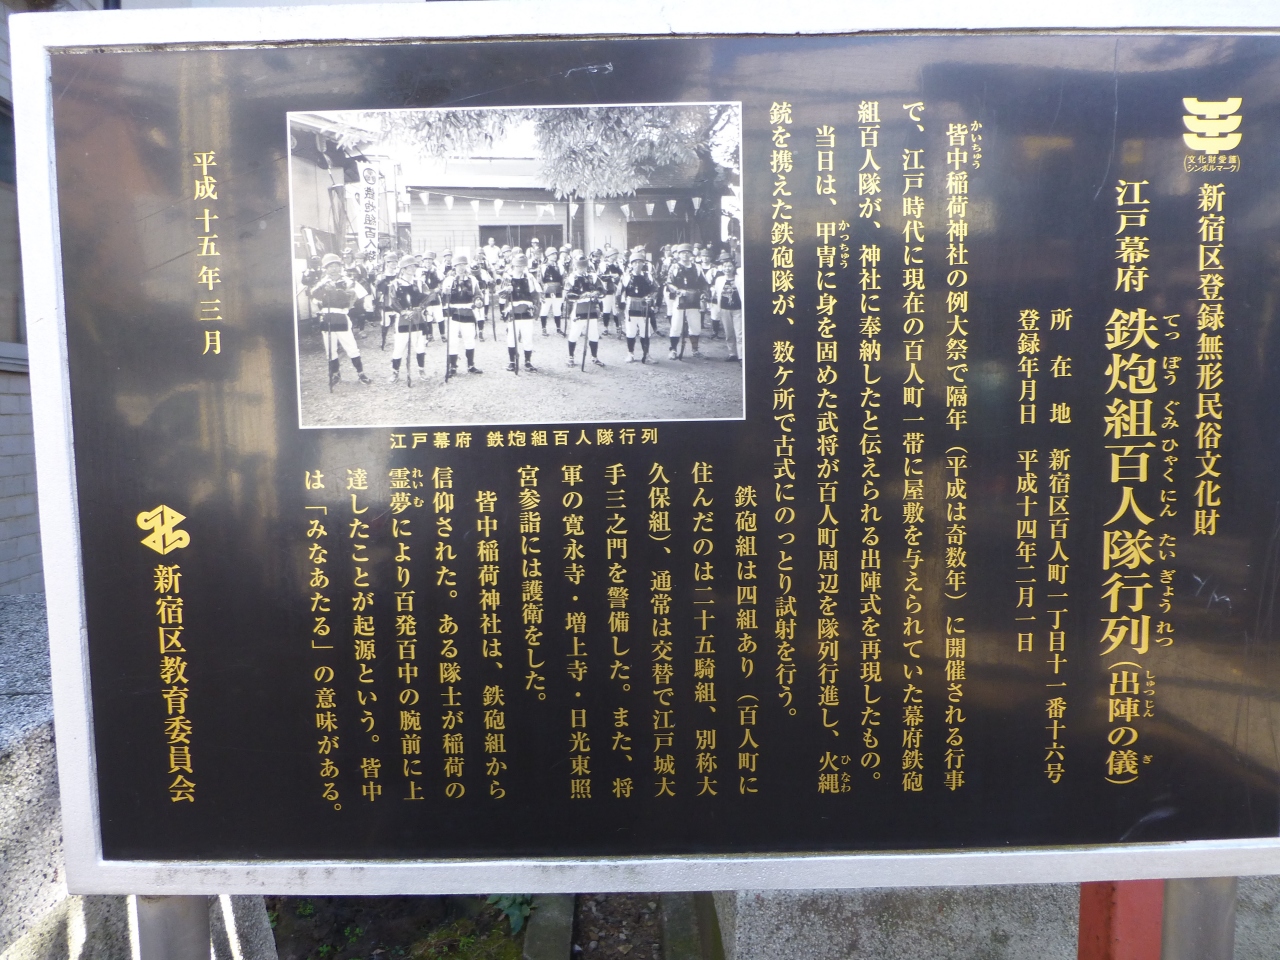 文化財愛護
シンボルマーク
新宿区登録無形民俗文化財
江戸幕府 鉄炮組百人隊行列(出陣の儀)
てっぽうぐみひゃくにんたいぎょうれつ
しゅつじん ぎ
所在地 新宿区百人町一丁目十一番十六号
登録年月日 平成十四年二月一日
かいちゅう
皆中稲荷神社の例大祭で隔年(平成は奇数年)に開催される行事
で、江戸時代に現在の百人町一帯に屋敷を与えられていた幕府鉄砲
組百人隊が、神社に奉納したと伝えられる出陣式を再現したもの。
かっちゅう
ひなわ
当日は、甲冑に身を固めた武将が百人町周辺を隊列行進し、火縄
銃を携えた鉄砲隊が、数ケ所で古式にのっとり試射を行う。
鉄炮組百人隊
江戸幕府 鉄炮組百人隊行列
鉄砲組は四組あり(百人町に
住んだのは二十五騎組、別称大
久保組)、通常は交替で江戸城大
手三之門を警備した。また、将
軍の寛永寺・増上寺・日光東照
宮参詣には護衛をした。
皆中稲荷神社は、鉄砲組から
信仰された。ある隊士が稲荷の
れいむ
霊夢により百発百中の腕前に上
達したことが起源という。皆中
は「みなあたる」の意味がある。
平成十五年三月
新宿区教育委員会